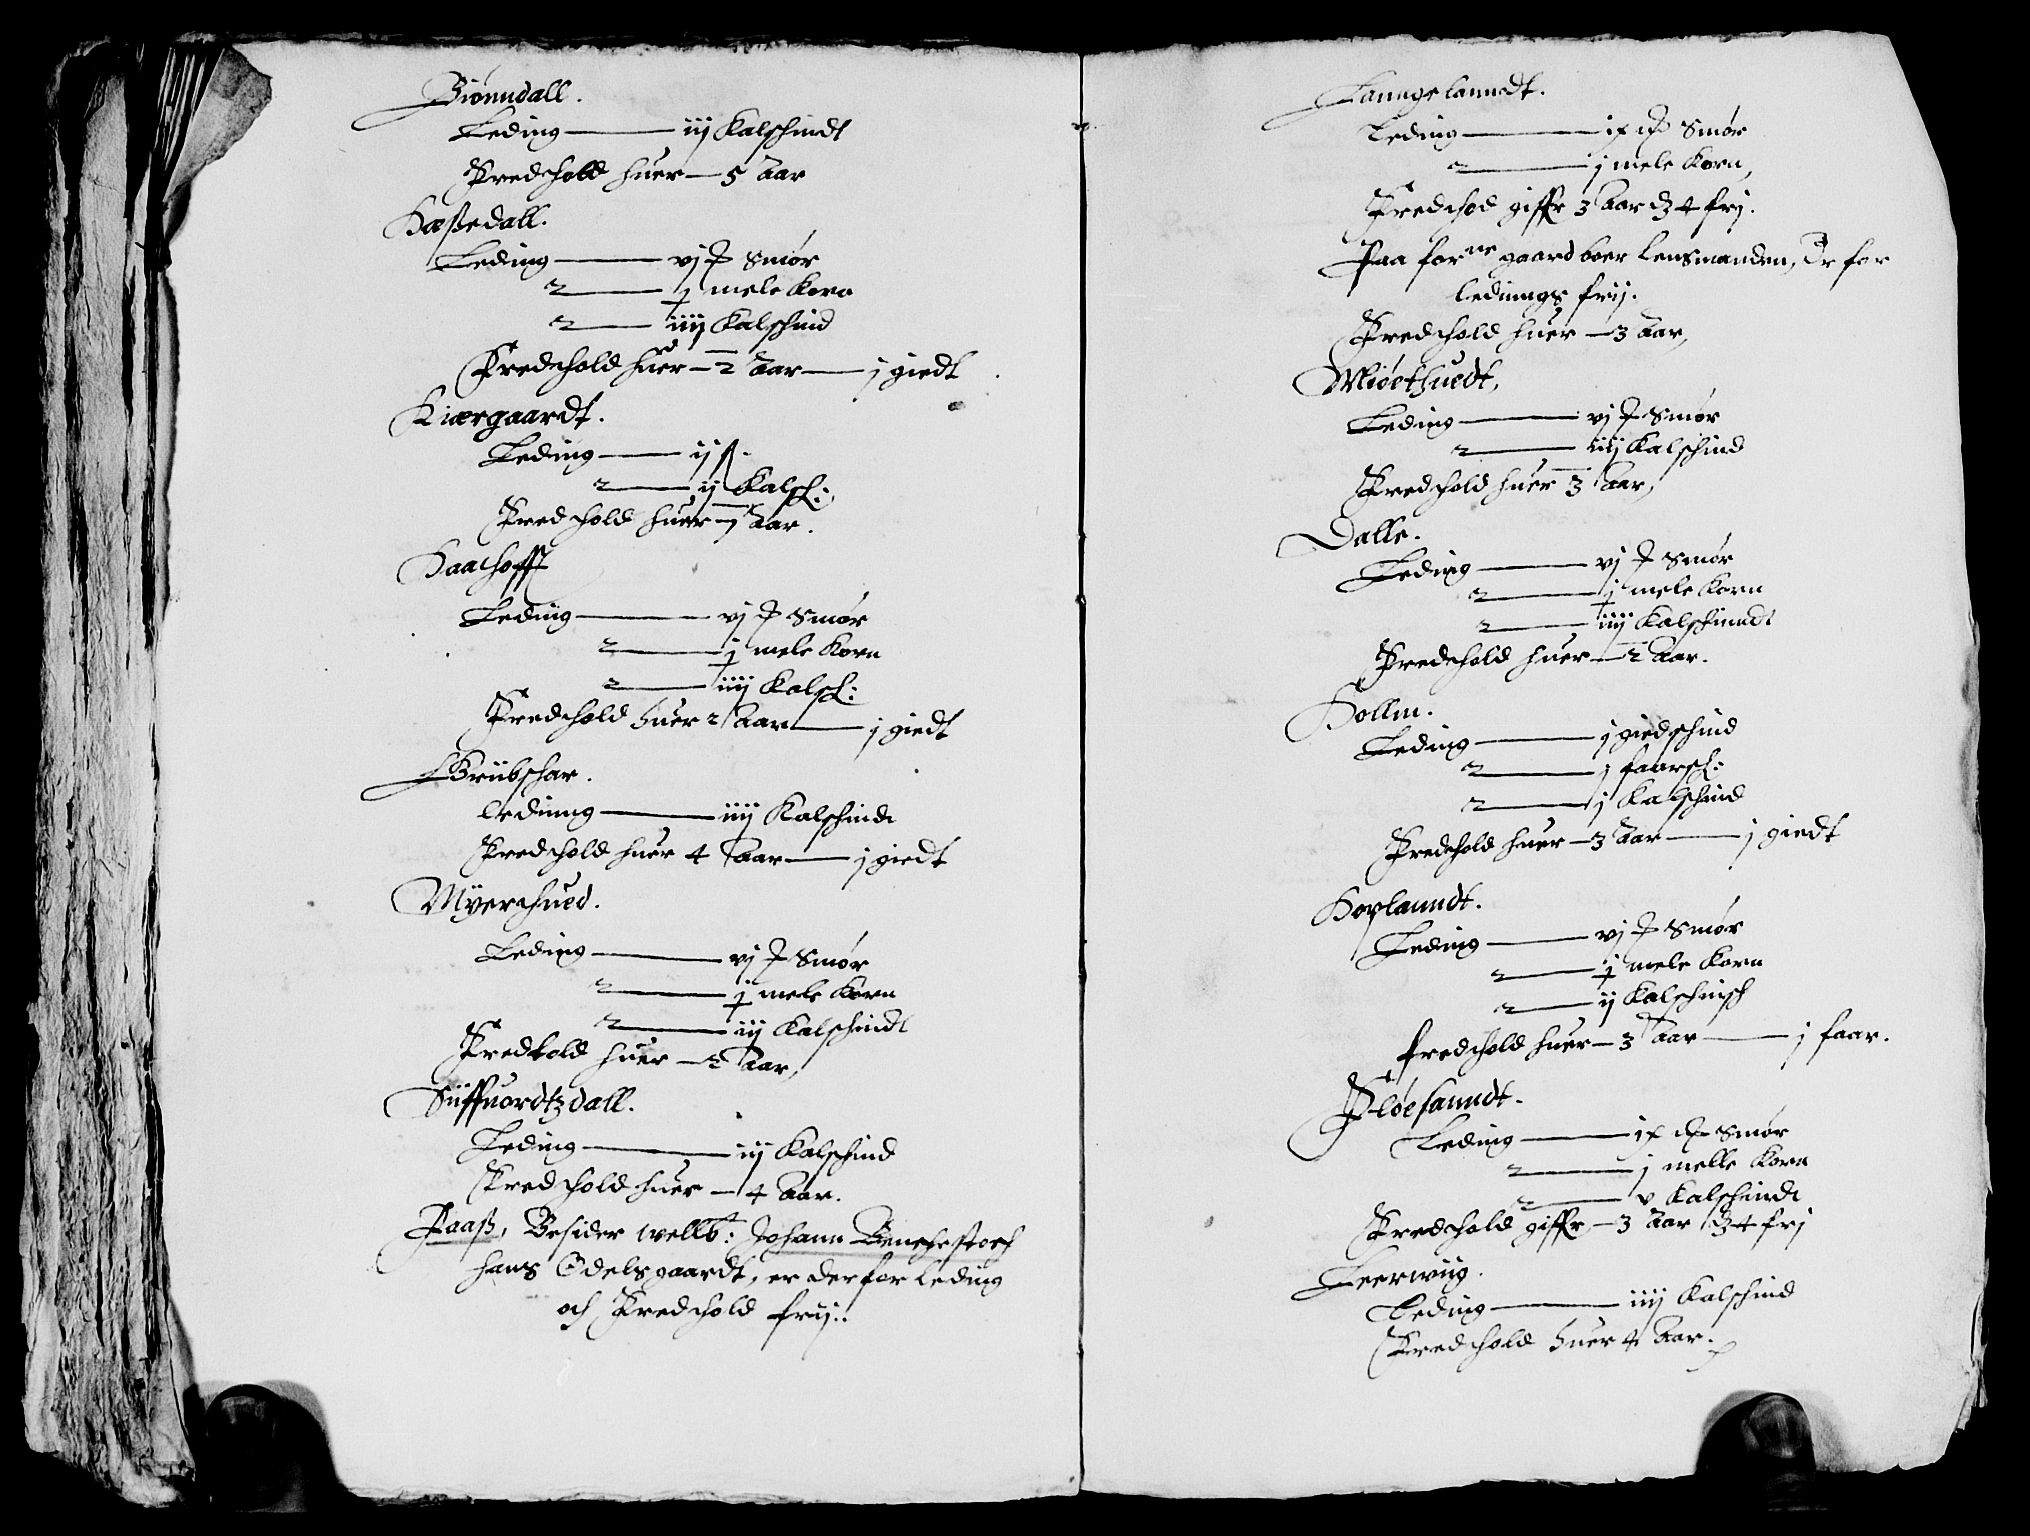 Biönndall.
Leding — iij Kalschindt
Fredchold huer — 5 Aar
Haßedall.
Leding — vj ℔ Smör
2 — j mele Korn
2 — iiij Kalschind
Fredchold huer — 2 Aar — j giedt
Kiærgaardt.
Leding — ij ß.
2 — ij Kalsch:
Fredchold huer — 7 Aar.
Haachofft
Leding — vj ℔ Smör
2 — j mele Korn
2 — iiij Kalsch:
Fredchold huer 2 Aar — j giedt
Grübschar.
Ledinng — iiij Kalschindt
Fredchold huer 4 Aar — j giedt
Myerchued.
Leding — vj ℔ Smör
2 — j mele Korn
2 — iij Kalschindt
Fredkold huer — 2 Aar,
Süffuordtzdall.
Leding — iij Kalschind
Fredchold huer — 4 Aar.
Faaß, Besider wellb: Johann Benchestoch
hans Odelsgaardt, er derfor Leding
och Fredchold frij:.
Lanngelanndt.
Leding — ix ℔ Smör
2 — j mele Korn,
Fredchod giffr 3 Aar dz 4 frj.
Paa forne gaard boer Lensmanden, Er for
ledinngs frij.
Fredchold huer — 3 Aar,
Miöethuedt,
Leding — vj ℔ Smör
2 — iiij Kalschind
Fredchold huer 3 Aar,
Dalle.
Leding — vj ℔ Smör
2 — j mele Korn
2 — iiij Kalschinndt
Fredchold huer — 2 Aar.
Hollm.
Leding — j giedschind
2 — j faarsch:
2 — j Kalschind
Fredchold huer — 3 Aar — j giedt
Hoplanndt.
Leding — vj ℔ Smör
2 — j mele Korn
2 — ij Kalschinsch
fredchold huer — 3 Aar — j faar.
Flöesanndt.
Leding — ix ℔ Smör
2 — j melle Korn
2 — v Kalschindt
Fredchold giffr — 3 Aar dz 4 frj
Leerwiig.
Leding — iiij Kalschind
Fredchold huer 4 Aar.